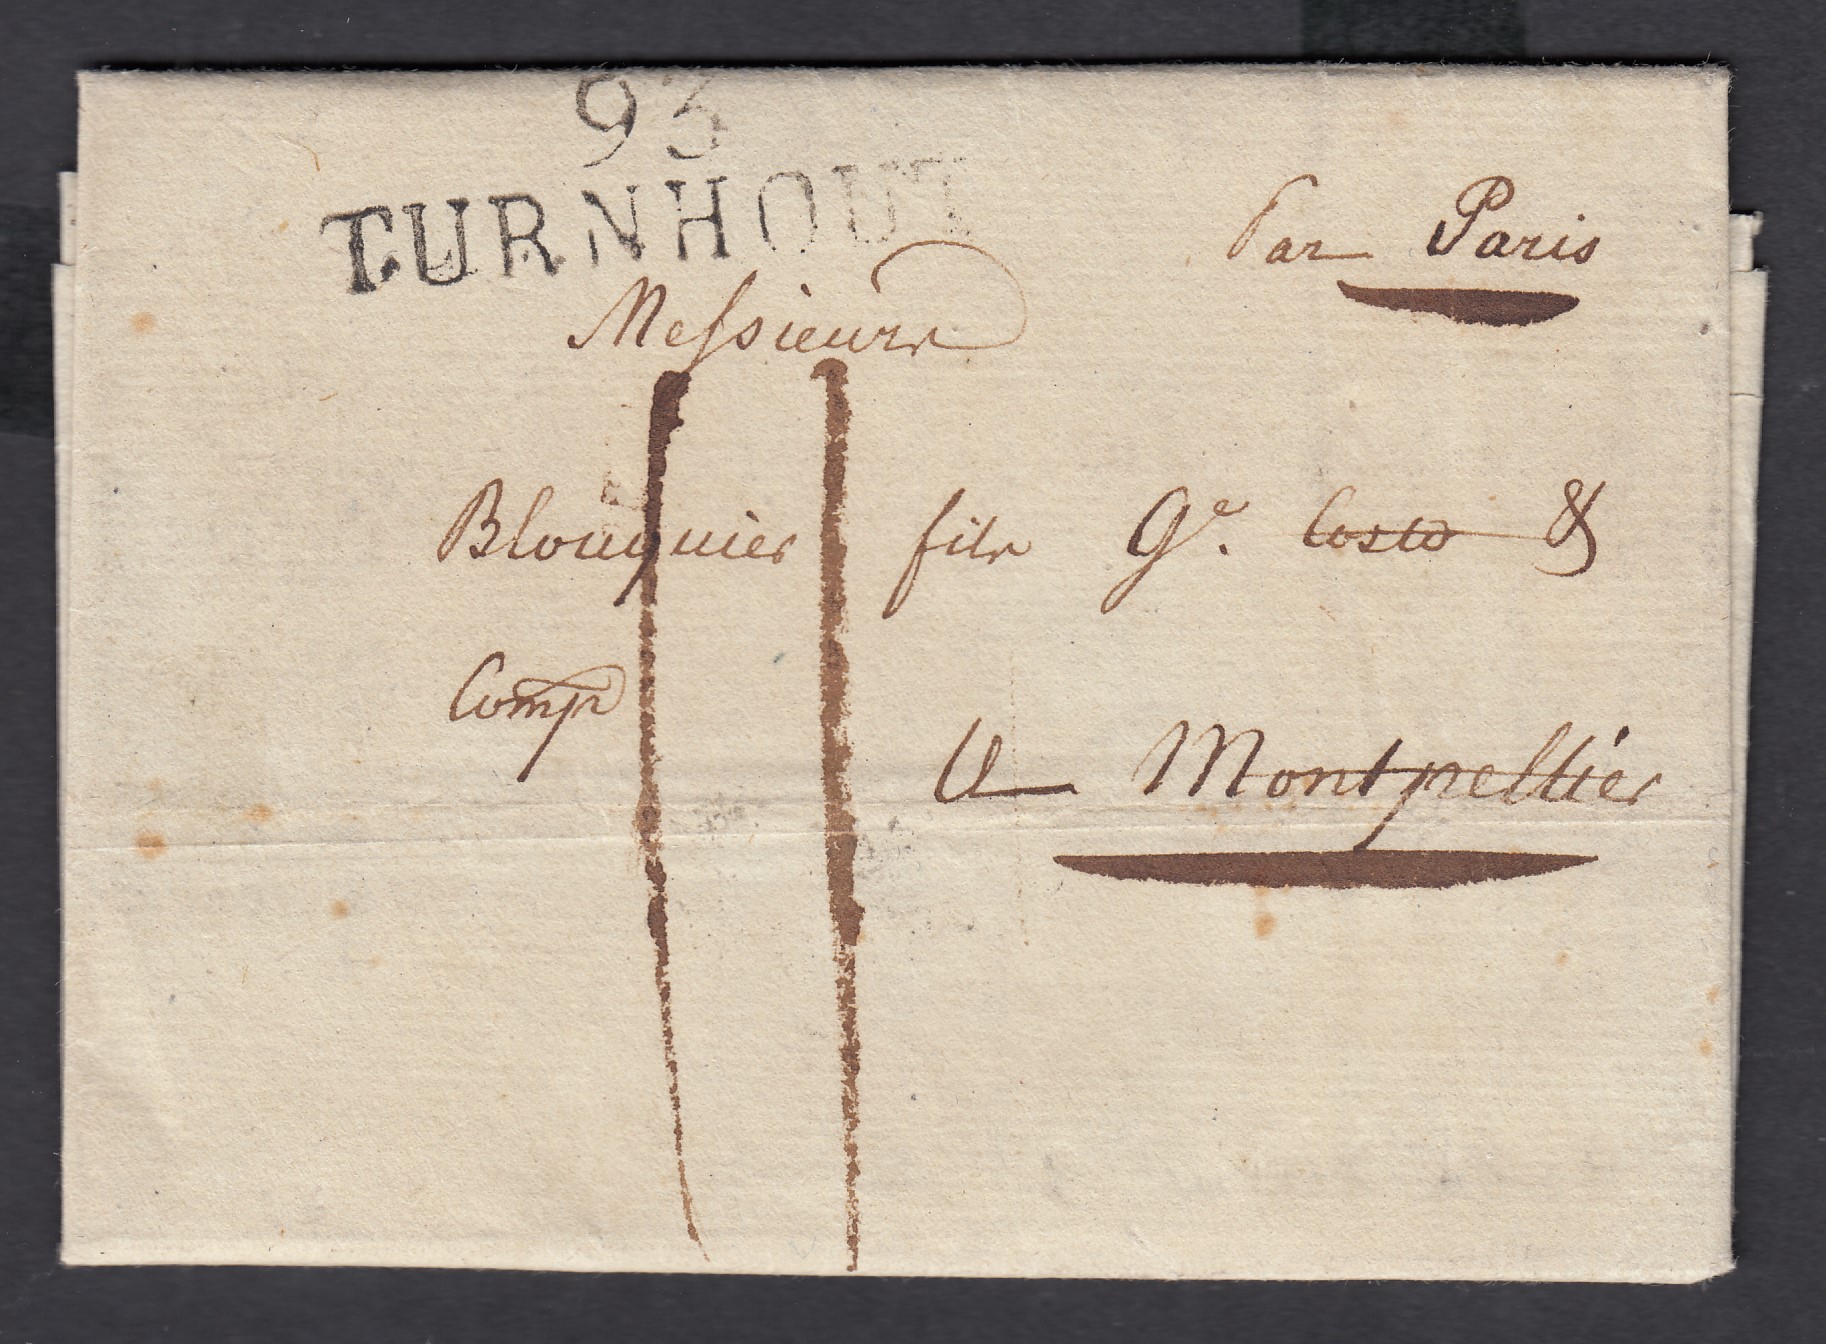 93
TURNHOUT
Par Paris
Messieurs
Blouquier fils Ge. Coste &
Comp
11
A Montpellier